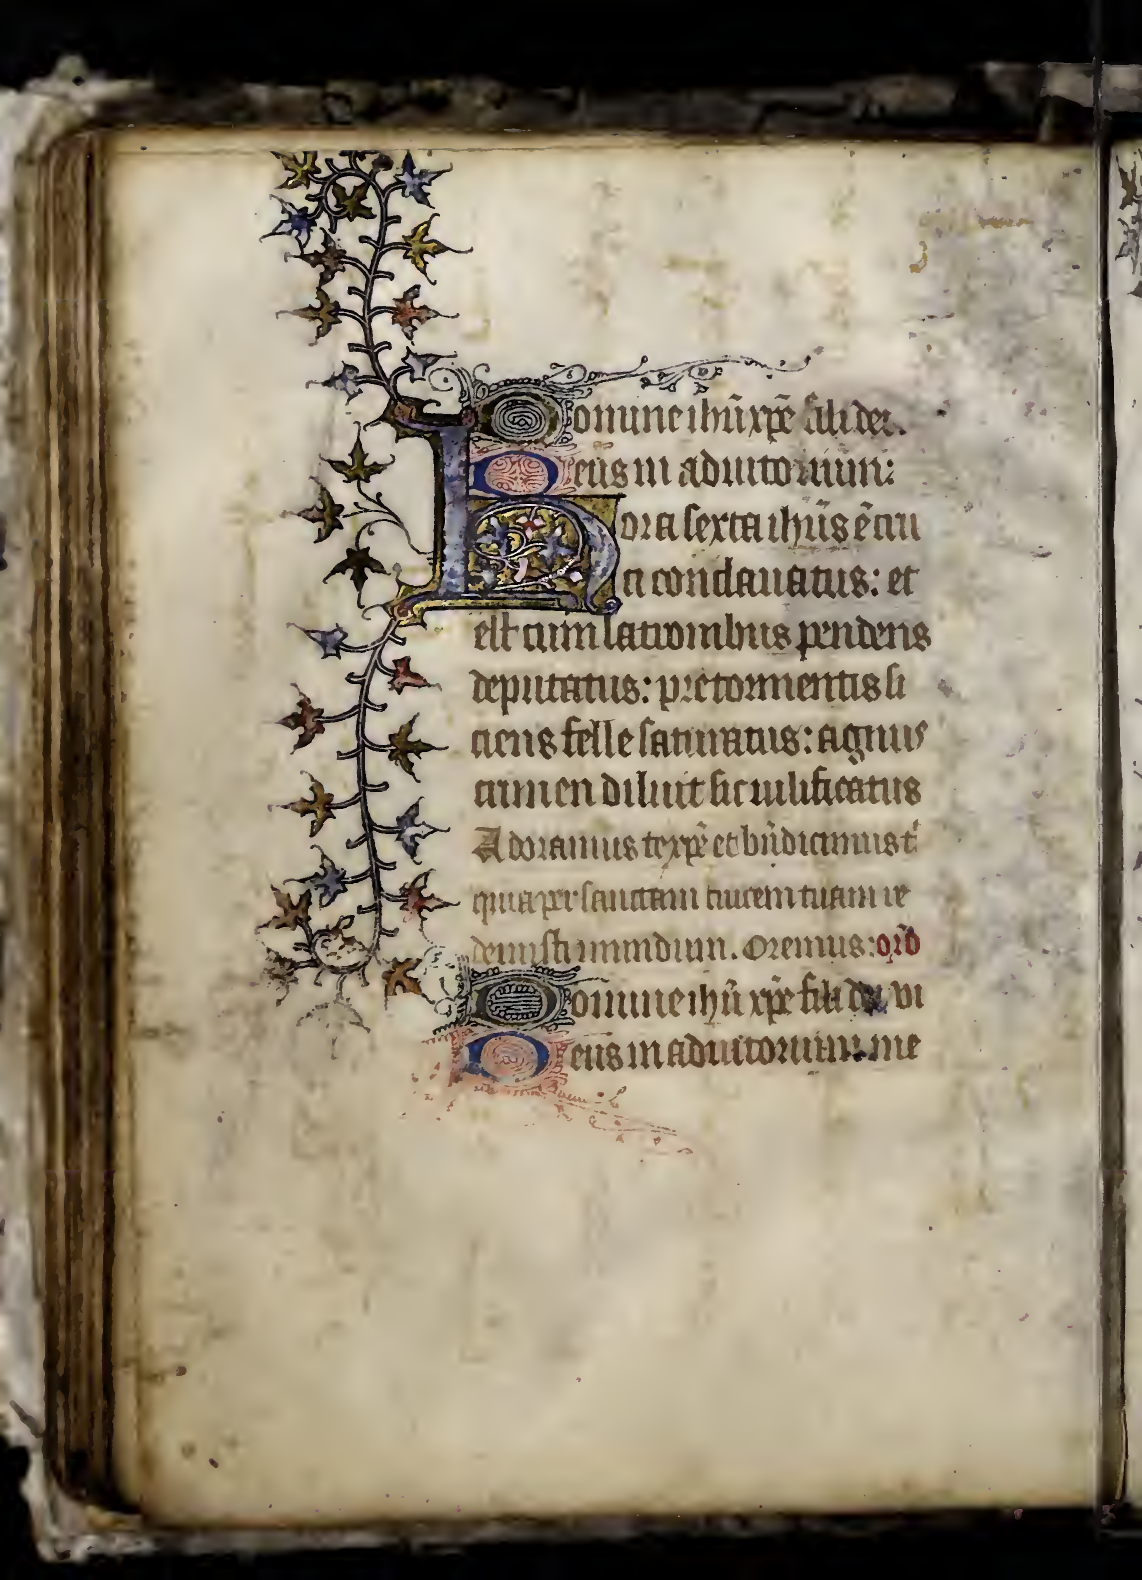 Domine ihū xp̄e fili dei.
Deus in adiutorium:
Hora sexta ihūs ē cru
ci conclauatus: et
est cum latronibus pendens
deputatus: pre tormentis si
ciens felle saturatus: agnus
crimen diluit sic iulificatus
Adoramus te xp̄e et bn̄dicimus t
quia per sanctam crucem tuam re
demisti mundum. Oremus: orō
Domine ihū xp̄e fili dei vi
Deus in adiutorium. me